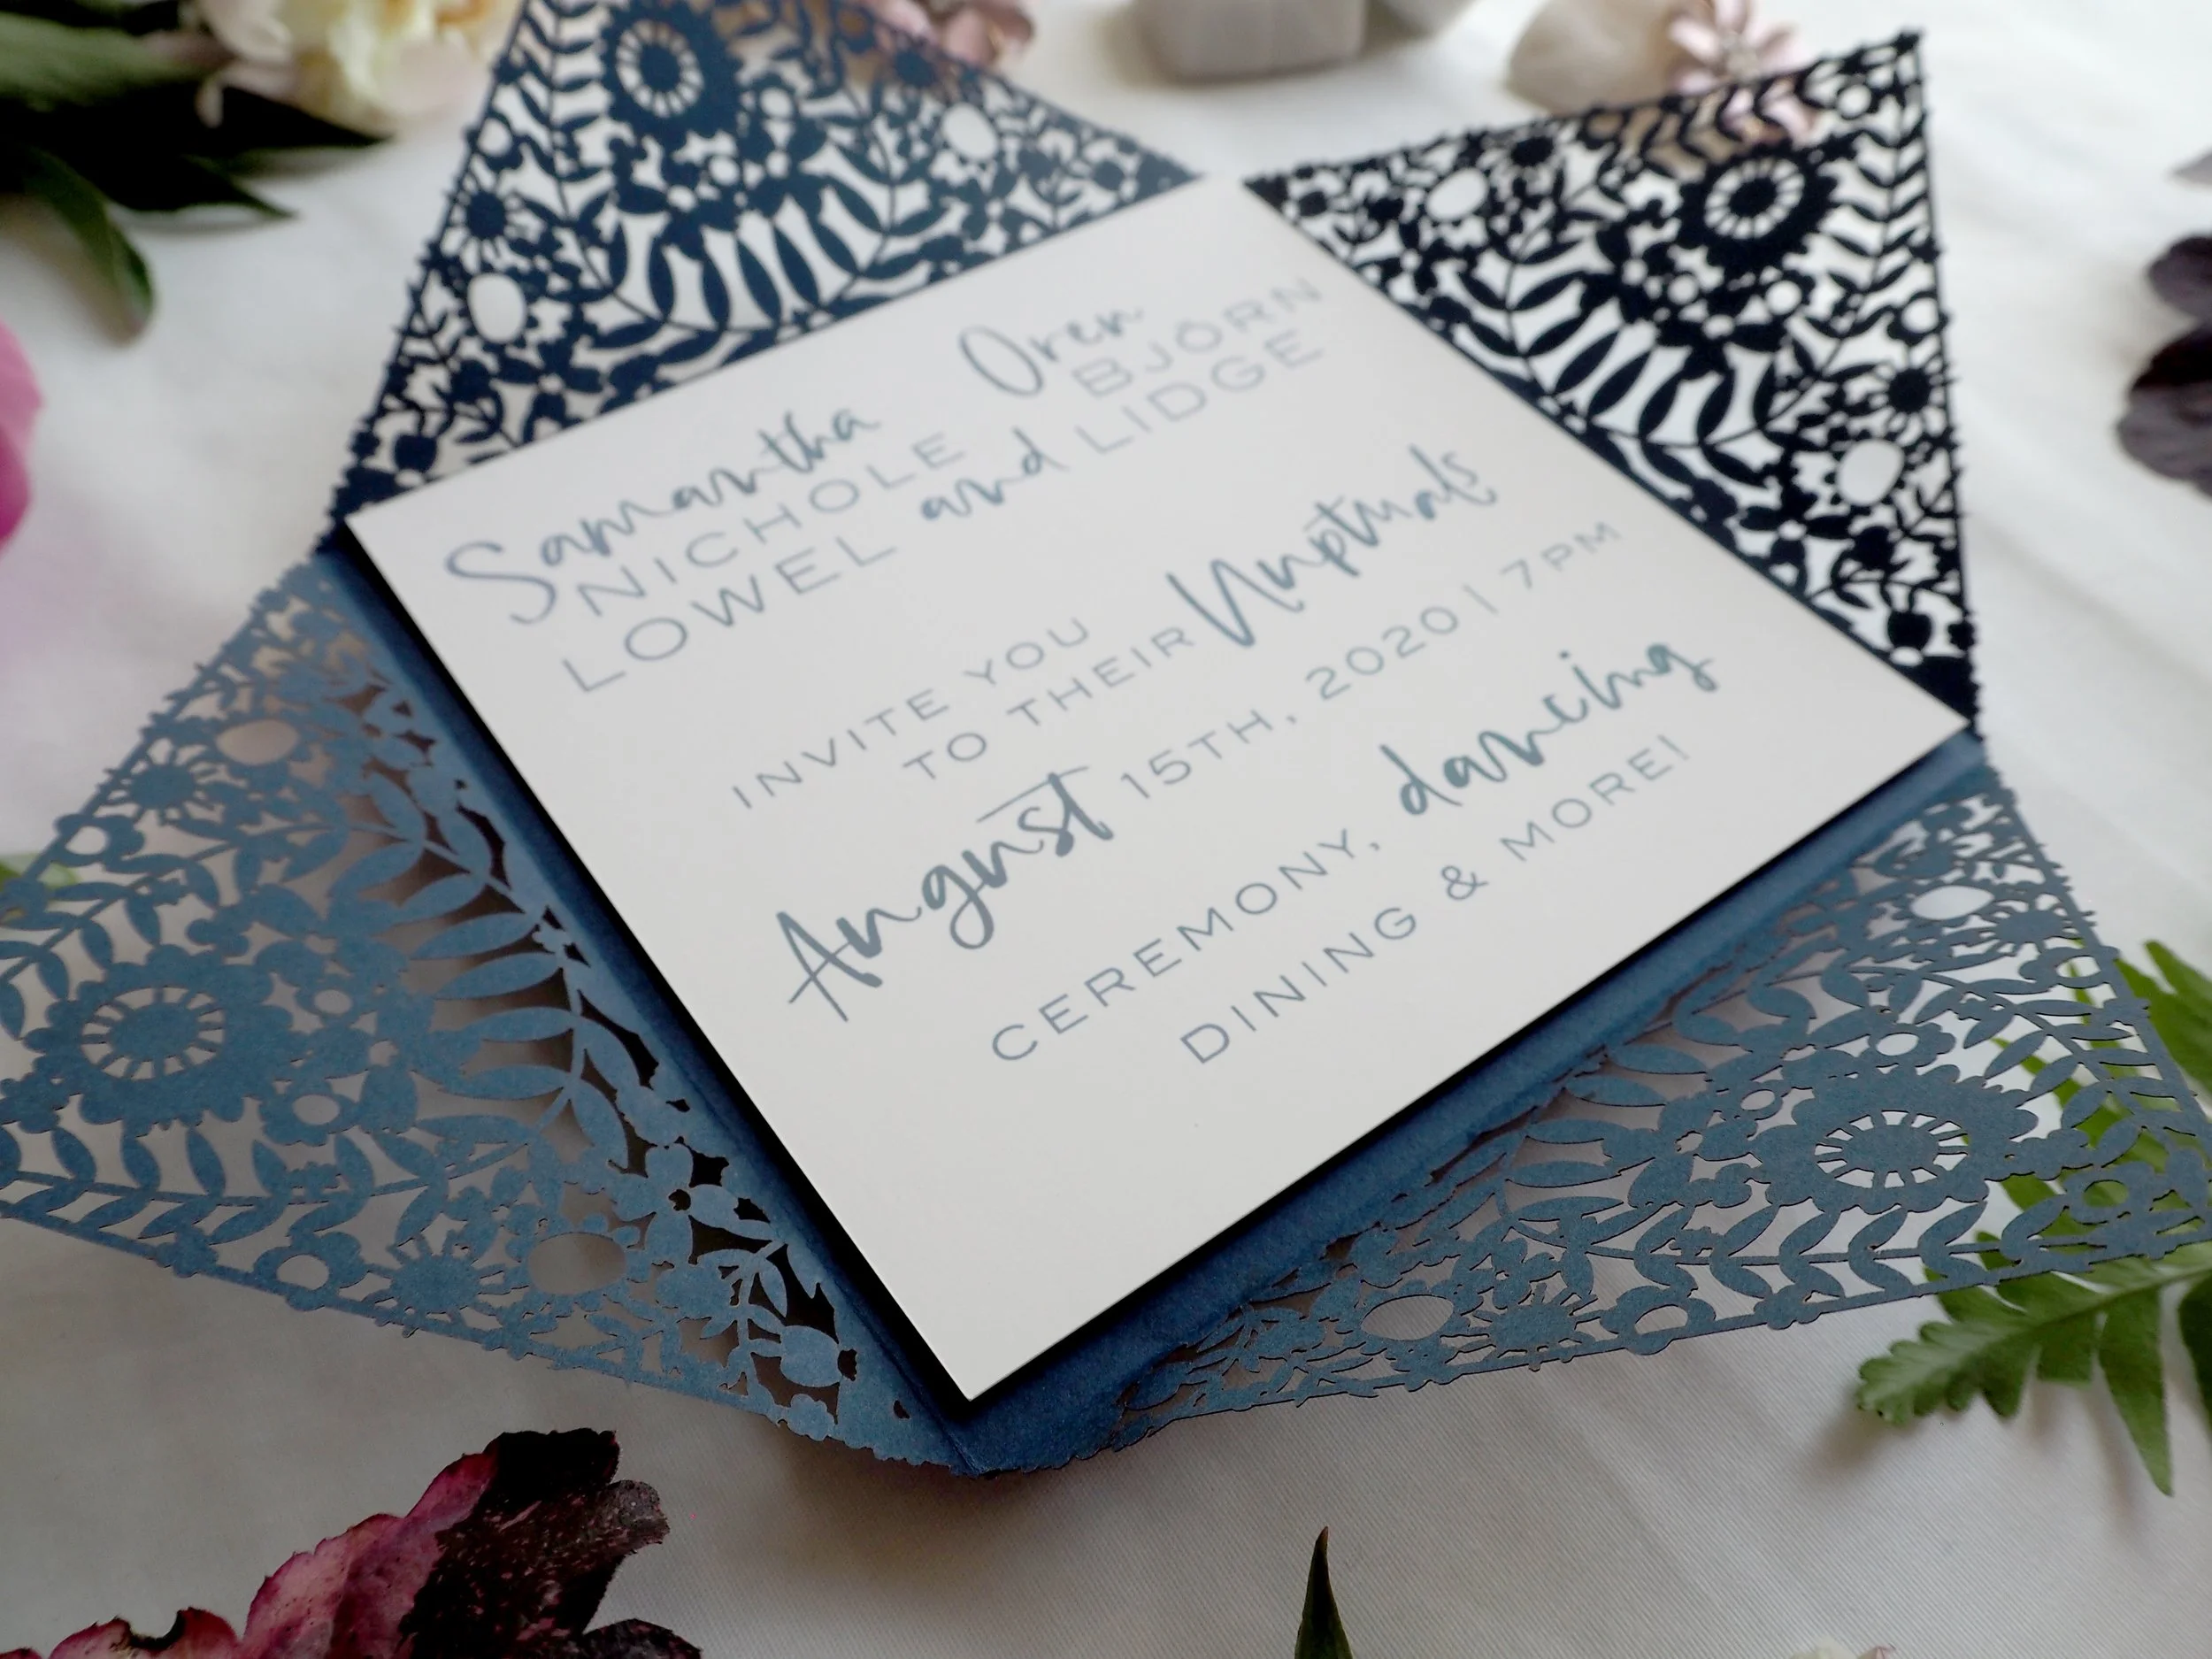 Samantha Oren
NICHOLE BJORN
LOWEL and LIDGE
INVITE YOU
TO THEIR Nuptuals
August 15TH, 2020 | 7PM
CEREMONY, dancing
DINING & MORE!